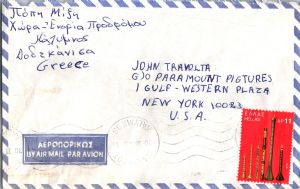 Πόπη Μίξη
Χώρα-Ενορία Προδρόμου
Κάλυμνος
Δοδεκάνισα
Greece
JOHN TRAVOLTA
C/O PARAMOUNT PICTURES
1 GULF-WESTERN PLAZA
NEW YORK 10023
U.S.A.
ΑΕΡΟΠΟΡΙΚΩΣ
BY AIR MAIL PAR AVION
ΕΛΛΑΣ
HELLAS
ΔΡ 11